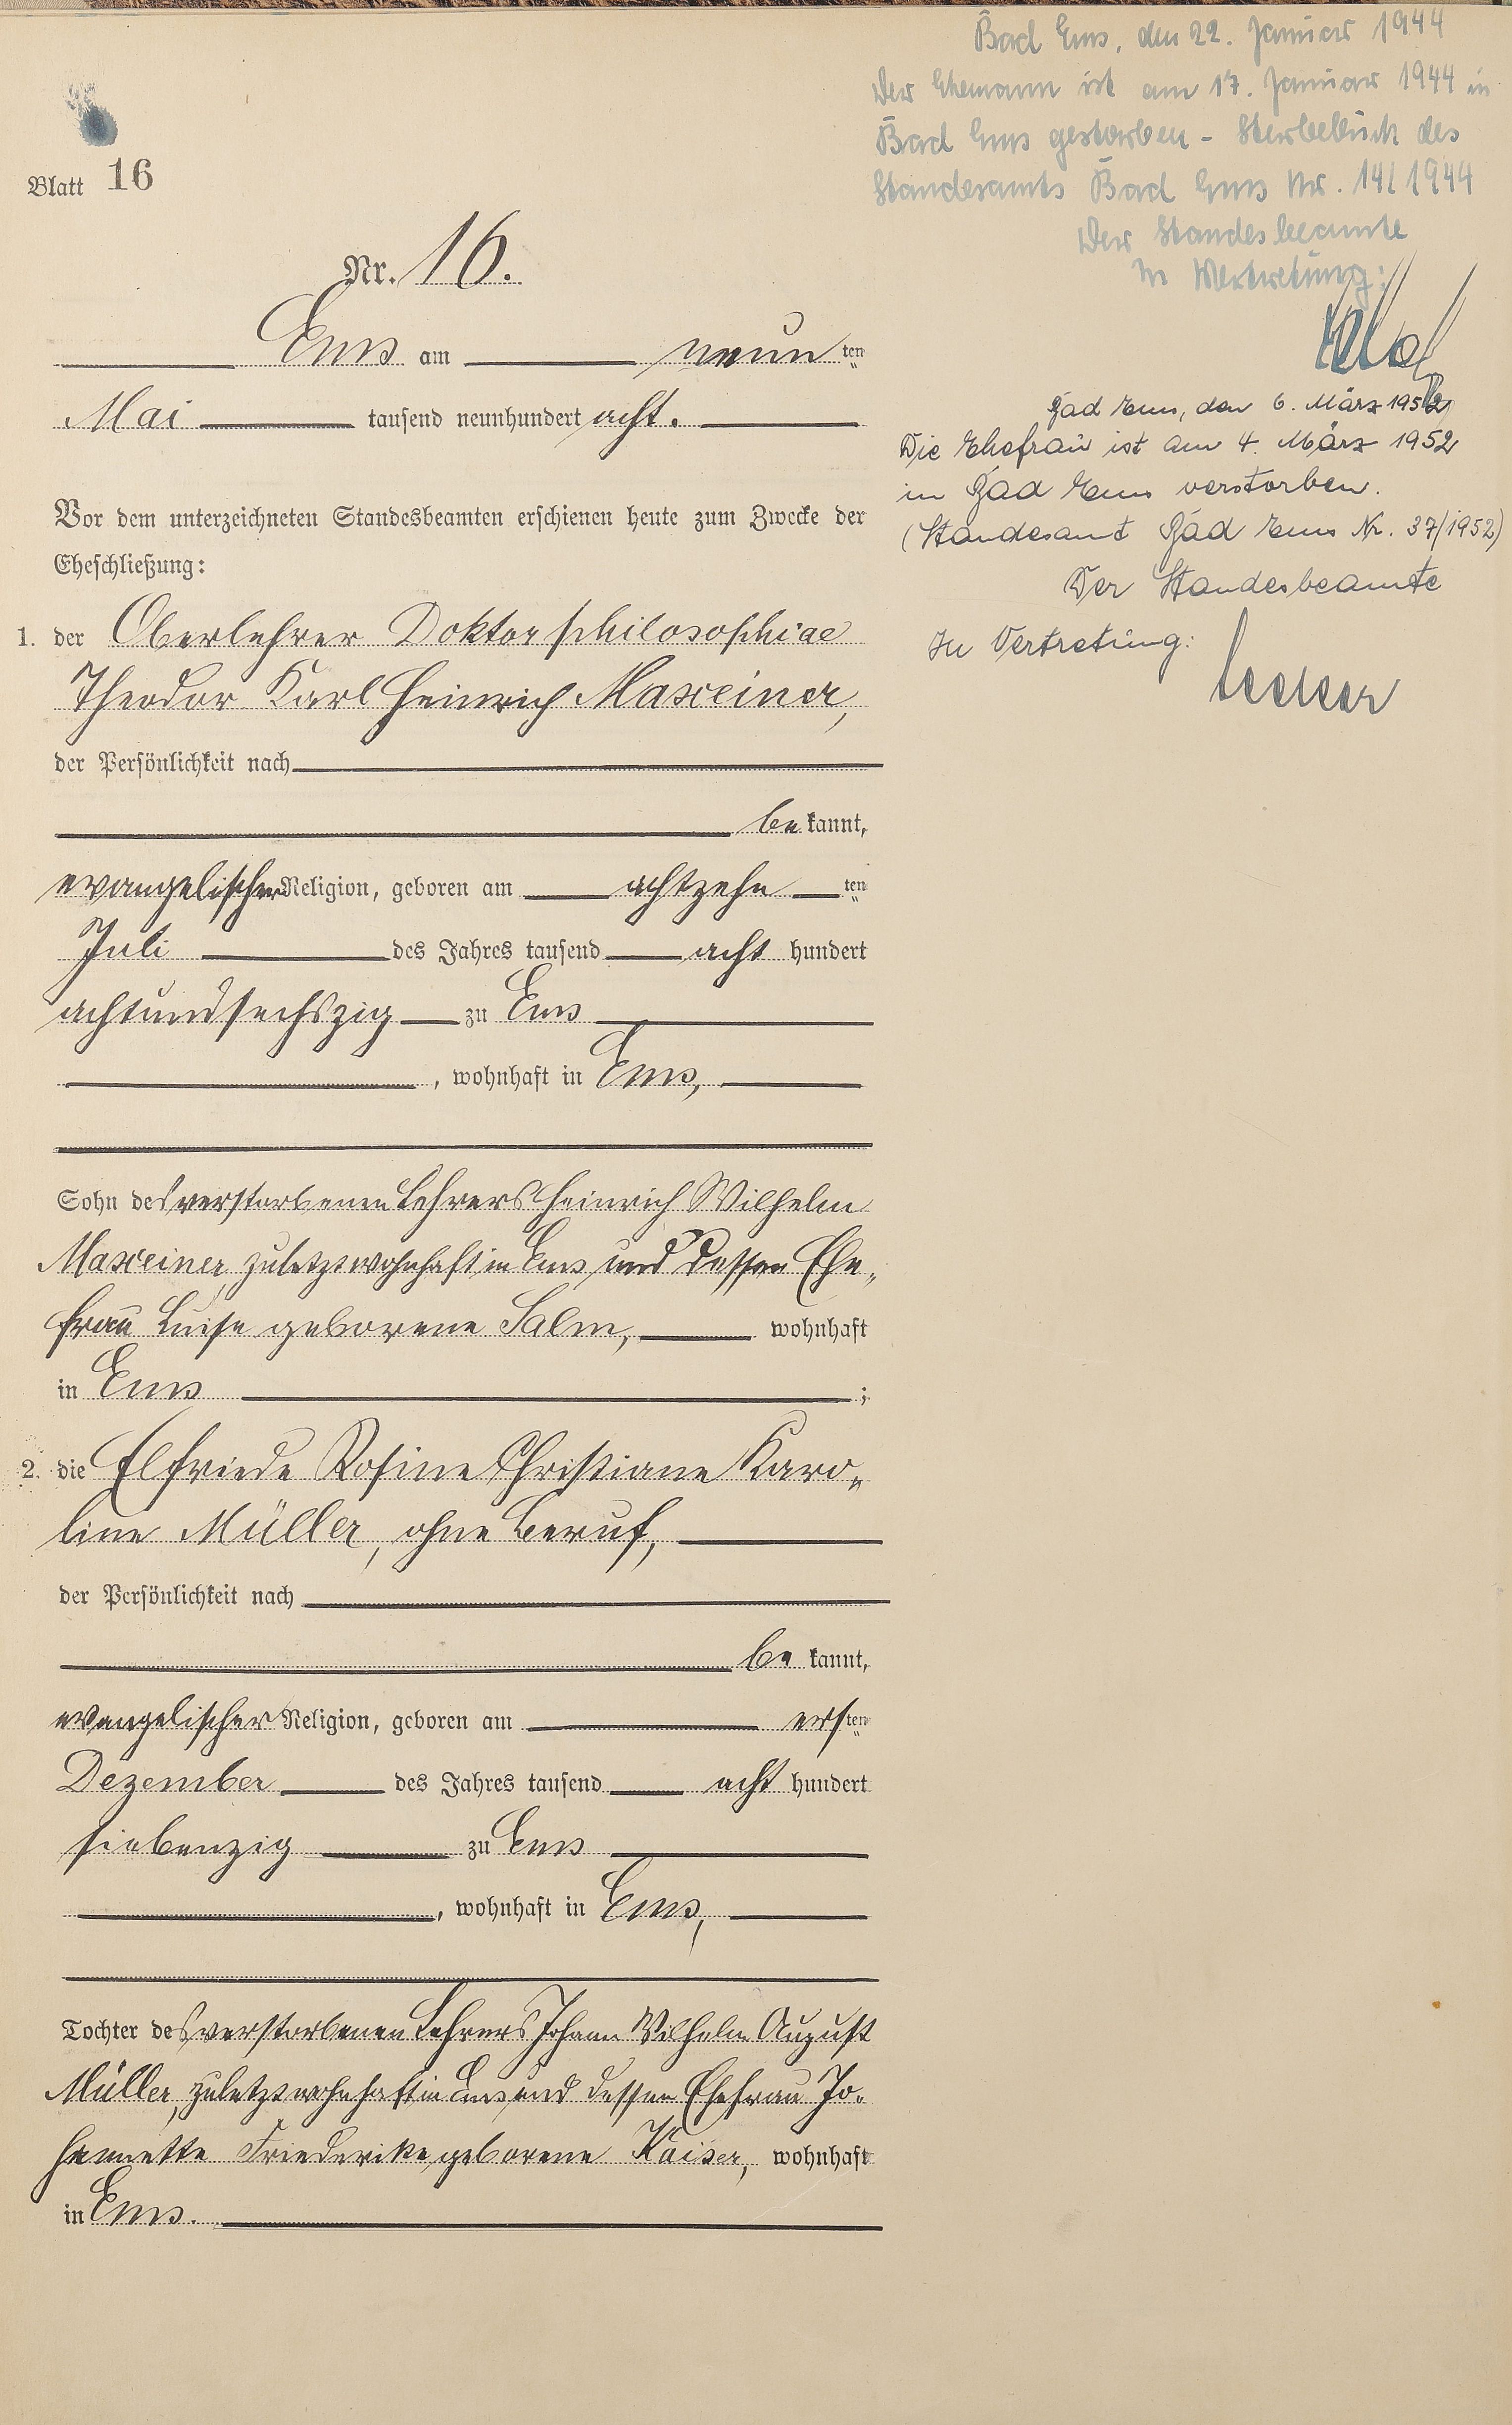 Blatt 16
Nr. 16.
Ems am neun ten
Mai tausend neunhundert acht.
Vor dem unterzeichneten Standesbeamten erschienen heute zum Zwecke der
Eheschließung:
1. der Oberlehrer Doktor philosophiae
Theodor Karl Heinrich Maxeiner,
der Persönlichkeit nach
be kannt,
evangelischer Religion, geboren am achtzehn ten
Juli des Jahres tausend acht hundert
achtundsechszig zu Ems
, wohnhaft in Ems,
Sohn des verstorbenen Lehrers Heinrich Wilhelm
Maxeiner, zuletzt wohnhaft in Ems und dessen Ehe„
frau Luise geborene Salm, wohnhaft
in Ems ;
2. die Elfriede Rosine Christiane Karo„
line Müller, ohne Beruf,
der Persönlichkeit nach
be kannt,
evangelischer Religion, geboren am ers ten
Dezember des Jahres tausend acht hundert
siebenzig zu Ems
, wohnhaft in Ems,
Tochter des verstorbenen Lehrers Johann Wilhelm August
Müller, zuletzt wohnhaft in Ems und dessen Ehefrau Jo„
hannette Friederike geborene Kaiser, wohnhaft
in Ems.
Bad Ems, den 22. Januar 1944
Der Ehemann ist am 17. Januar 1944 in
Bad Ems gestorben - Sterbebuch des
Standesamts Bad Ems Nr. 14/1944
Der Standesbeamte
In Vertretung:
Bad Ems, den 6. März 1952
Die Ehefrau ist am 4. März 1952
in Bad Ems verstorben.
(Standesamt Bad Ems Nr. 37/1952)
Der Standesbeamte
In Vertretung: